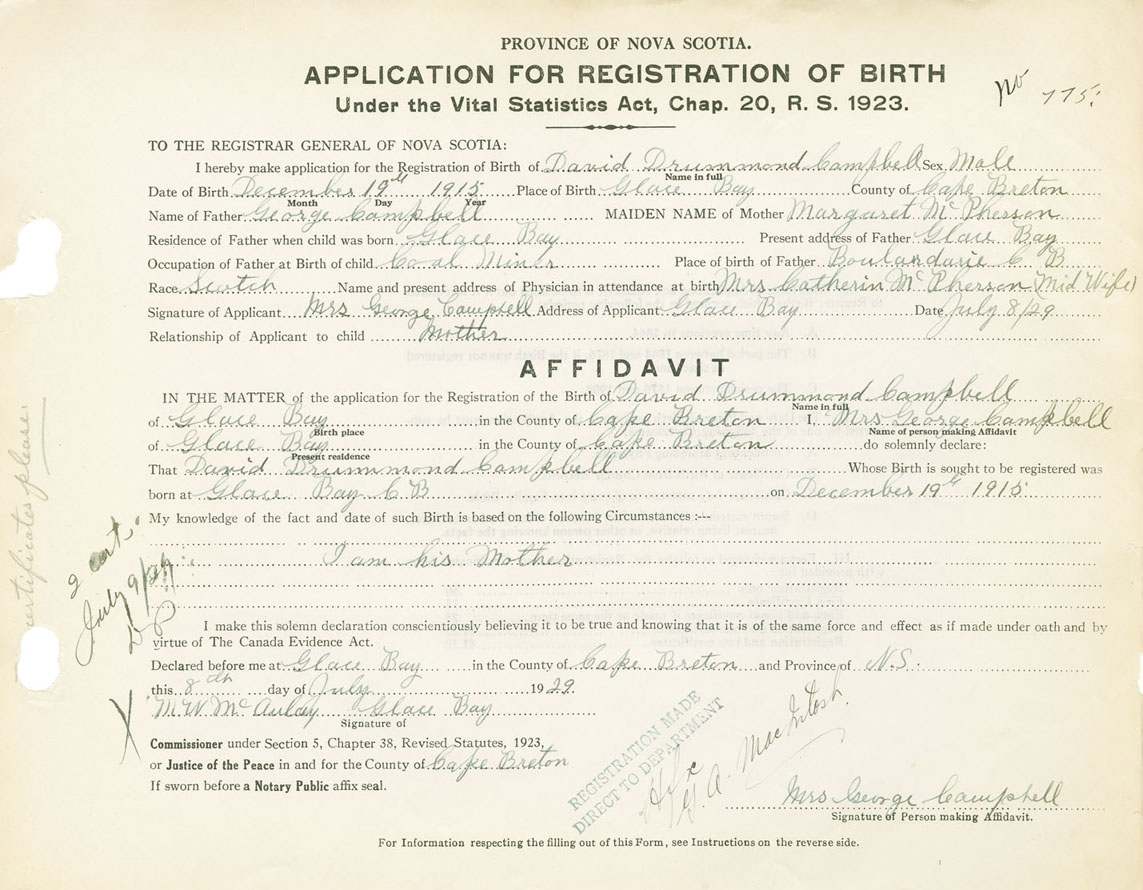 PROVINCE OF NOVA SCOTIA.
APPLICATION FOR REGISTRATION OF BIRTH
No 775.
Under the Vital Statistics Act, Chap. 20, R. S. 1923.
TO THE REGISTRAR GENERAL OF NOVA SCOTIA:
I hereby make application for the Registration of Birth of David Drummond Campbell Sex Male
Name in full
Date of Birth December 19th 1915 Place of Birth Glace Bay County of Cape Breton
Month Day Year
Name of Father George Campbell MAIDEN NAME of Mother Margaret McPherson
Residence of Father when child was born Glace Bay Present address of Father Glace Bay
Occupation of Father at Birth of child Coal Miner Place of birth of Father Boulardarie C B
Race Scotch Name and present address of Physician in attendance at birth Mrs Catherin McPherson (Mid Wife)
Signature of Applicant Mrs George Campbell Address of Applicant Glace Bay Date July 8/29
Relationship of Applicant to child Mother
AFFIDAVIT
IN THE MATTER of the application for the Registration of the Birth of David Drummond Campbell
Name in full
of Glace Bay in the County of Cape Breton I, Mrs George Campbell
Birth place Name of person making Affidavit
of Glace Bay in the County of Cape Breton do solemnly declare:
Present residence
That David Drummond Campbell Whose Birth is sought to be registered was
born at Glace Bay C B on December 19th 1915
My knowledge of the fact and date of such Birth is based on the following Circumstances :---
I am his Mother
certificates please.
2 cert.
July 9/29
I make this solemn declaration conscientiously believing it to be true and knowing that it is of the same force and effect as if made under oath and by
virtue of The Canada Evidence Act.
Declared before me at Glace Bay in the County of Cape Breton and Province of N.S.
this 8th day of July 1929.
X M. W. McAulay Glace Bay
Signature of
Commissioner under Section 5, Chapter 38, Revised Statutes, 1923,
or Justice of the Peace in and for the County of Cape Breton
If sworn before a Notary Public affix seal.
REGISTRATION MADE
DIRECT TO DEPARTMENT
Hfx
G. A. MacIntosh.
Mrs George Campbell
Signature of Person making Affidavit.
For Information respecting the filling out of this Form, see Instructions on the reverse side.